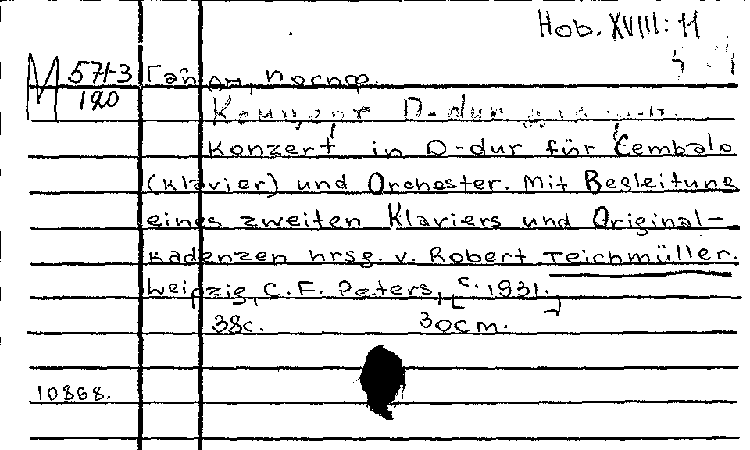 Hob. XVIII: 11
M 5713 Гайдн, Иосиф.
120
Концерт D-dur для
Konzert in D-dur für Cembalo
(Klavier) und Orchester. Mit Begleitung
eines zweiten Klaviers und Original-
kadenzen hrsg. v. Robert Teichmüller.
Leipzig, C. F. Peters, [c. 1931.]
38c. 30cm.
10868.